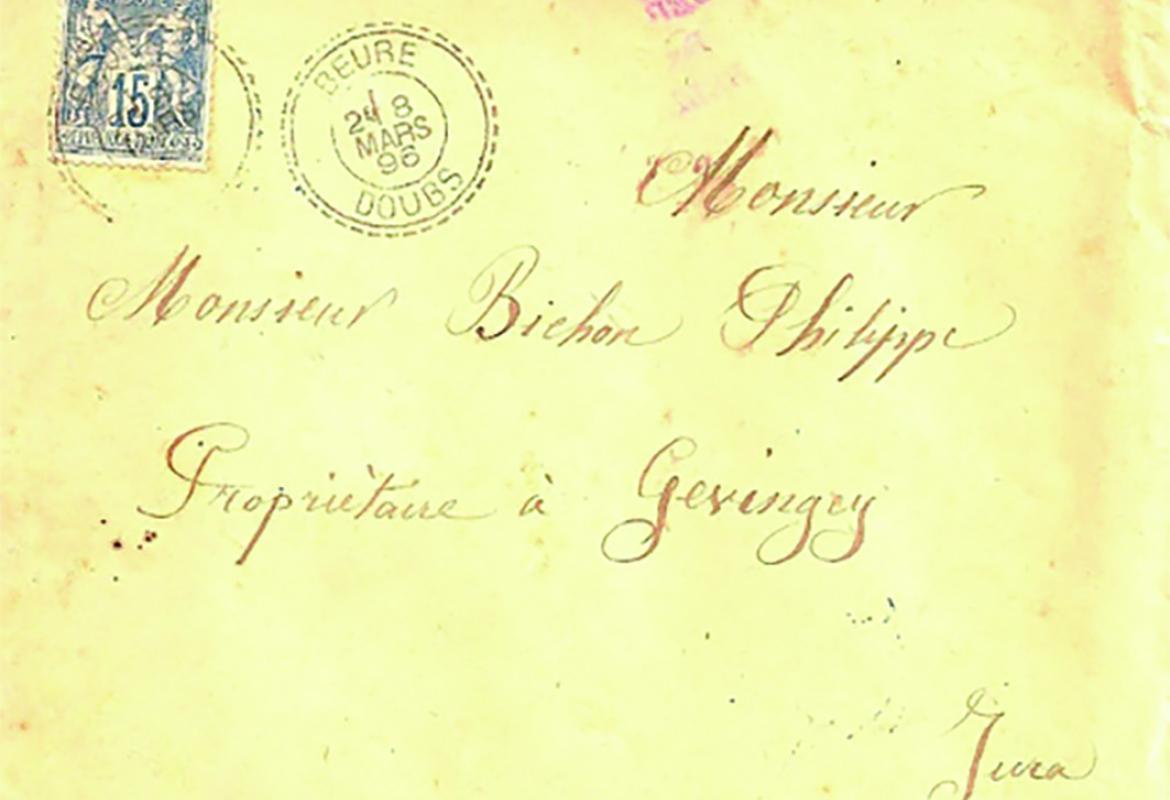 15
BEURE
2E 8
MARS
96
DOUBS
Monsieur
Monsieur Bichon Philippe
Propriètaire à Gevingey
Jura